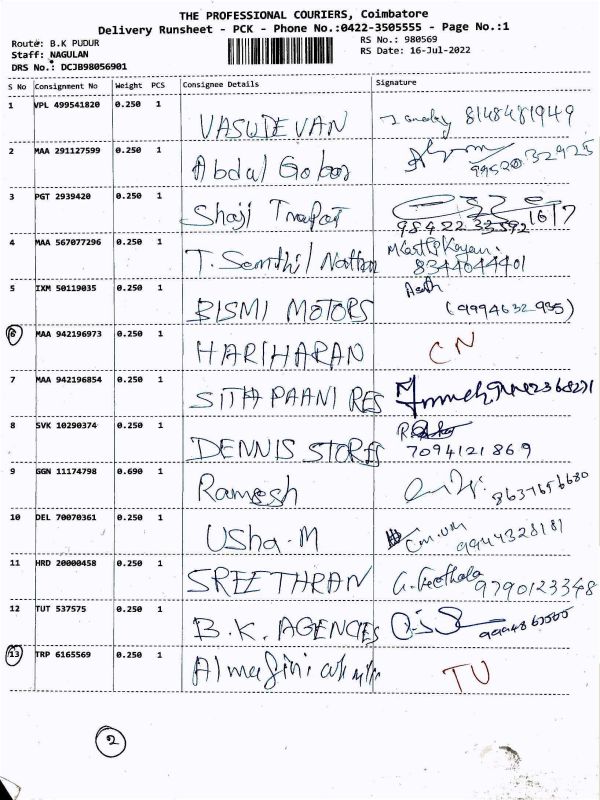 THE PROFESSIONAL COURIERS, Coimbatore
Delivery Runsheet - PCK - Phone No.:0422-3505555 - Page No.:1
Route: B.K PUDUR
RS No.: 980569
Staff: NAGULAN
RS Date: 16-Jul-2022
DRS No.: DCJB98056901
S No Consignment No Weight PCS Consignee Details Signature
1 VPL 499541820 0.250 1 VASUDEVAN 8148481949
2 MAA 291127599 0.250 1 Abdul Gobar 9952032925
3 PGT 2939420 0.250 1 Shaji 16/7
9842233592
4 MAA 567077296 0.250 1 T. Senthil Nathan
8344044401
5 IXM 50119035 0.250 1 BISMI MOTORS (9994632935)
6 MAA 942196973 0.250 1 HARIHARAN CN
7 MAA 942196854 0.250 1 SITHPAANI RES
8 SVK 10290374 0.250 1 DENNIS STORES
7094121869
9 GGN 11174798 0.690 1 Ramesh 8637656680
10 DEL 70070361 0.250 1 Usha-M 9944328181
11 HRD 20000458 0.250 1 SREETHRAN G. Geethala 9790123348
12 TUT 537575 0.250 1 B.K. AGENCIES
13 TRP 6165569 0.250 1 TU
2